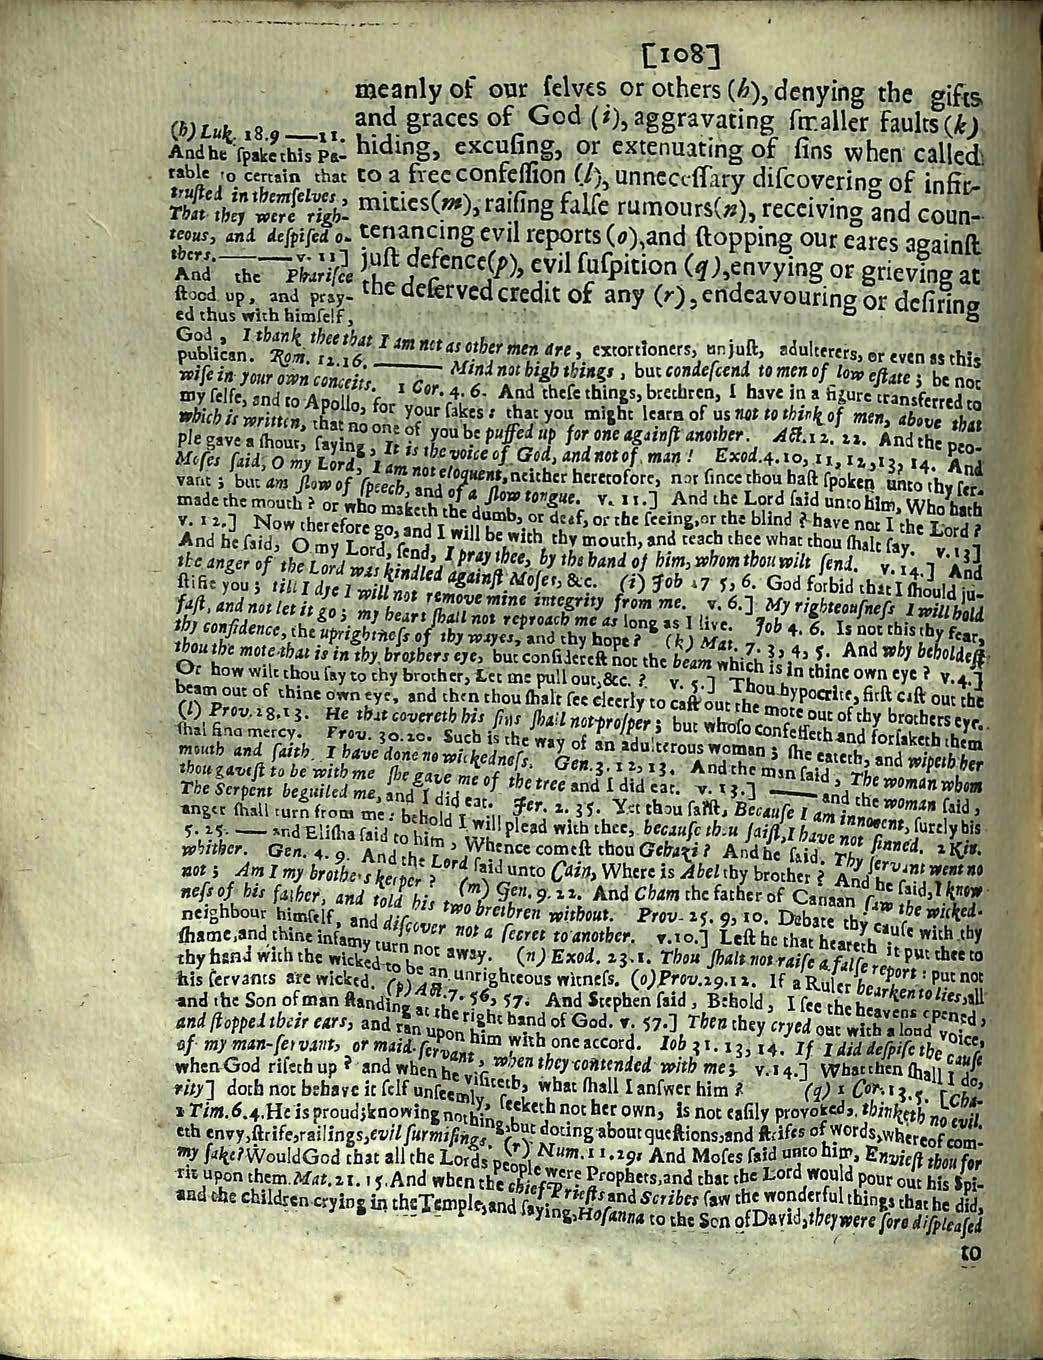 [108]
meanly of our ſelves or others (h), denying the gifts
and graces of God (i), aggravating ſmaller faults (k)
hiding, excuſing, or extenuating of ſins when called
to a free confeſſion (l), unneceſſary diſcovering of infir-
mities(m), raiſing falſe rumours(n), receiving and coun-
tenancing evil reports (o),and ſtopping our eares againſt
juſt defence(p), evil ſuſpition (q),envying or grieving at
the deſerved credit of any (r), endeavouring or deſiring
(h) Luk. 18.9 —11.
And he ſpake this Pa-
rable to certain that
truſted in themſelves,
That they were righ-
teous, and deſpiſed o-
thers.——v. 11]
And the Phariſee
ſtood up, and pray-
ed thus with himſelf,
God, I thank thee that I am not as other men are, extortioners, unjuſt, adulterers, or even as this
publican. Rom. 12.16. —— Mind not high things, but condeſcend to men of low eſtate; be not
wiſe in your own conceits. 1 Cor. 4. 6. And theſe things, brethren, I have in a figure transferred to
my ſelfe, and to Apollo, for your ſakes: that you might learn of us not to think of men, above that
which is written, that no one of you be puffed up for one againſt another. Act.12. 22. And the peo-
ple gave a ſhout, ſaying, It is the voice of God, and not of man! Exod.4.10, 11, 12, 13, 14. And
Moſes ſaid, O my Lord, I am not eloquent, neither heretofore, nor ſince thou haſt ſpoken unto thy ſer-
vant; but am ſlow of ſpeech, and of a ſlow tongue. v. 11.] And the Lord ſaid unto him, Who hath
made the mouth? or who maketh the dumb, or deaf, or the ſeeing, or the blind? have not I the Lord?
v. 12.] Now therefore go, and I will be with thy mouth, and teach thee what thou ſhalt ſay. v.13]
And he ſaid, O my Lord, ſend, I pray thee, by the hand of him, whom thou wilt ſend. v.14.] And
the anger of the Lord was kindled againſt Moſes, &c. (i) Job 27 5, 6. God forbid that I ſhould ju-
ſtifie you; till I dye I will not remove mine integrity from me. v. 6.] My righteouſneſs I will hold
faſt, and not let it go; my heart ſhall not reproach me as long as I live. Job 4. 6. Is not this thy fear,
thy confidence, the uprightneſs of thy wayes, and thy hope? (k) Mat. 7. 3, 4, 5. And why beholdeſt
thou the mote that is in thy brothers eye, but conſidereſt not the beam which is in thine own eye? v.4.]
Or how wilt thou ſay to thy brother, Let me pull out,&c.? v. 5.] Thou hypocrite, firſt caſt out the
beam out of thine own eye, and then thou ſhalt ſee cleerly to caſt out the mote out of thy brothers eye.
(l) Prov.28.13. He that covereth his ſins ſhall not proſper; but whoſo confeſſeth and forſaketh them
ſhal find mercy. Prov. 30.20. Such is the way of an adulterous woman; ſhe eateth, and wipeth her
mouth and ſaith, I have done no wickedneſs. Gen.3. 12, 13. And the man ſaid, The woman whom
thou gaveſt to be with me ſhe gave me of the tree and I did eat. v. 13.] —— and the woman ſaid,
The Serpent beguiled me, and I did eat. Jer. 2. 35. Yet thou ſaiſt, Becauſe I am innocent, ſurely his
anger ſhall turn from me: behold I will plead with thee, becauſe thou ſaiſt, I have not ſinned. 2 Kin.
5. 25. — and Eliſha ſaid to him, Whence comeſt thou Gehazi? And he ſaid. Thy ſervant went no
whither. Gen. 4. 9. And the Lord ſaid unto Cain, Where is Abel thy brother? And he ſaid, I know
not; Am I my brothers keeper? (m) Gen. 9. 22. And Cham the father of Canaan ſaw the wicked-
neſs of his father, and told his two brethren without. Prov. 25. 9, 10. Debate thy cauſe with thy
neighbour himſelf, and diſcover not a ſecret to another. v.10.] Leſt he that heareth it put thee to
ſhame, and thine infamy turn not away. (n) Exod. 23.1. Thou ſhalt not raiſe a falſe report: put not
thy hand with the wicked to be an unrighteous witneſs. (o)Prov.29.12. If a Ruler hearken to lies, all
his ſervants are wicked. (p) Act. 7. 56, 57. And Stephen ſaid, Behold, I ſee the heavens opened,
and the Son of man ſtanding at the right hand of God. v. 57.] Then they cryed out with a loud voice,
and ſtopped their ears, and ran upon him with one accord. Iob 31. 13, 14. If I did deſpiſe the cauſe
of my man-ſervant, or maid-ſervant, when they contended with me; v.14.] What then ſhall I do,
when God riſeth up? and when he viſiteth, what ſhall I anſwer him? (q) 1 Cor. 13. 5. [Cha-
rity] doth not behave it ſelf unſeemly, ſeeketh not her own, is not eaſily provoked, thinketh no evil.
1 Tim.6.4. He is proud; knowing nothing, but doting about queſtions, and ſtrifes of words, whereof com-
eth envy, ſtrife, railings, evil ſurmiſings. (r) Num. 11. 29. And Moſes ſaid unto him, Envieſt thou for
my ſake? Would God that all the Lords people were Prophets, and that the Lord would pour out his Spi-
rit upon them. Mat. 21. 15. And when the chief Prieſts and Scribes ſaw the wonderful things that he did,
and the children crying in the Temple, and ſaying, Hoſanna to the Son of David, they were ſore diſpleaſed
to